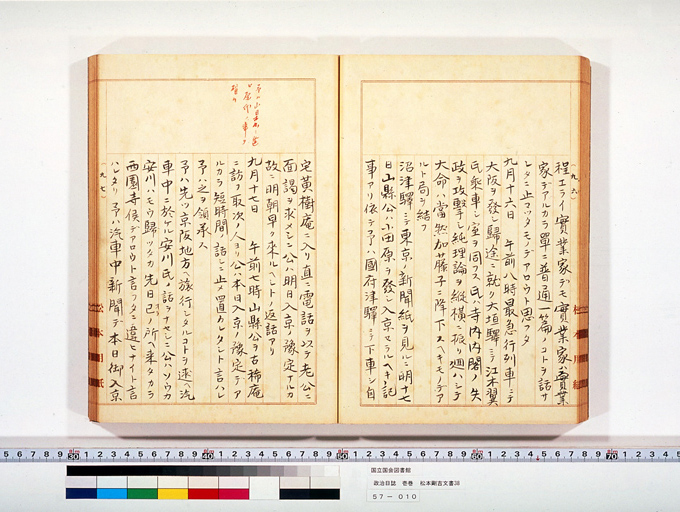 (九六)
程エライ實業家デモ實業家ハ實業
家デアルカラ單ニ普通一篇ノコトヲ話サ
レタニ止マツタモノデアロウト思フタ
九月十六日 午前八時最急行列車ニテ
大阪ヲ發シ歸途ニ就ク大垣驛ヨリ江木翼
氏乘車シ室ヲ同フス氏ハ寺内内閣ノ失
政ヲ攻撃シ純理論ヲ縦横ニ振リ廻ハシテ
大命ハ當然加藤子ニ降下スヘキモノデア
ルト局ヲ結フ
沼津驛ニテ東京ノ新聞紙ヲ見ルニ明十七
日山縣公ハ小田原ヲ發シ入京セラルヘキノ記
事アリ依テ予ハ國府津驛ニテ下車シ自
松本用紙
定黃樹庵ニ入リ直ニ電話ヲ以テ老公ニ
面謁ヲ求メシニ公ハ明日入京ノ豫定ナルカ
故ニ明朝早ク來ルヘシトノ返話アリ
九月十七日 午前七時山縣公ヲ古稀庵
ニ訪フ取次ノ人ヨリ公ハ本日入京ノ豫定デア
ルカラ短時間ノ話シニ止メ置カレタシト言ハレ
予ハ之ヲ領承ス
予ハ先ツ京阪地方ヘ旅行シタルコトヲ述ヘ汽
車中ニ於ケル安川氏ノ話ヲナセシニ公ハソウカ
安川ハモウ歸ツタカ先日己ノ所ヘ來タカラ
西園寺侯デアロウト言フタニ違ヒナイト言
ハレタリ予ハ汽車中新聞デ本日御入京
(九七)
松本用紙
国立国会図書館
政治日誌 壱巻 松本剛吉文書38
57-010